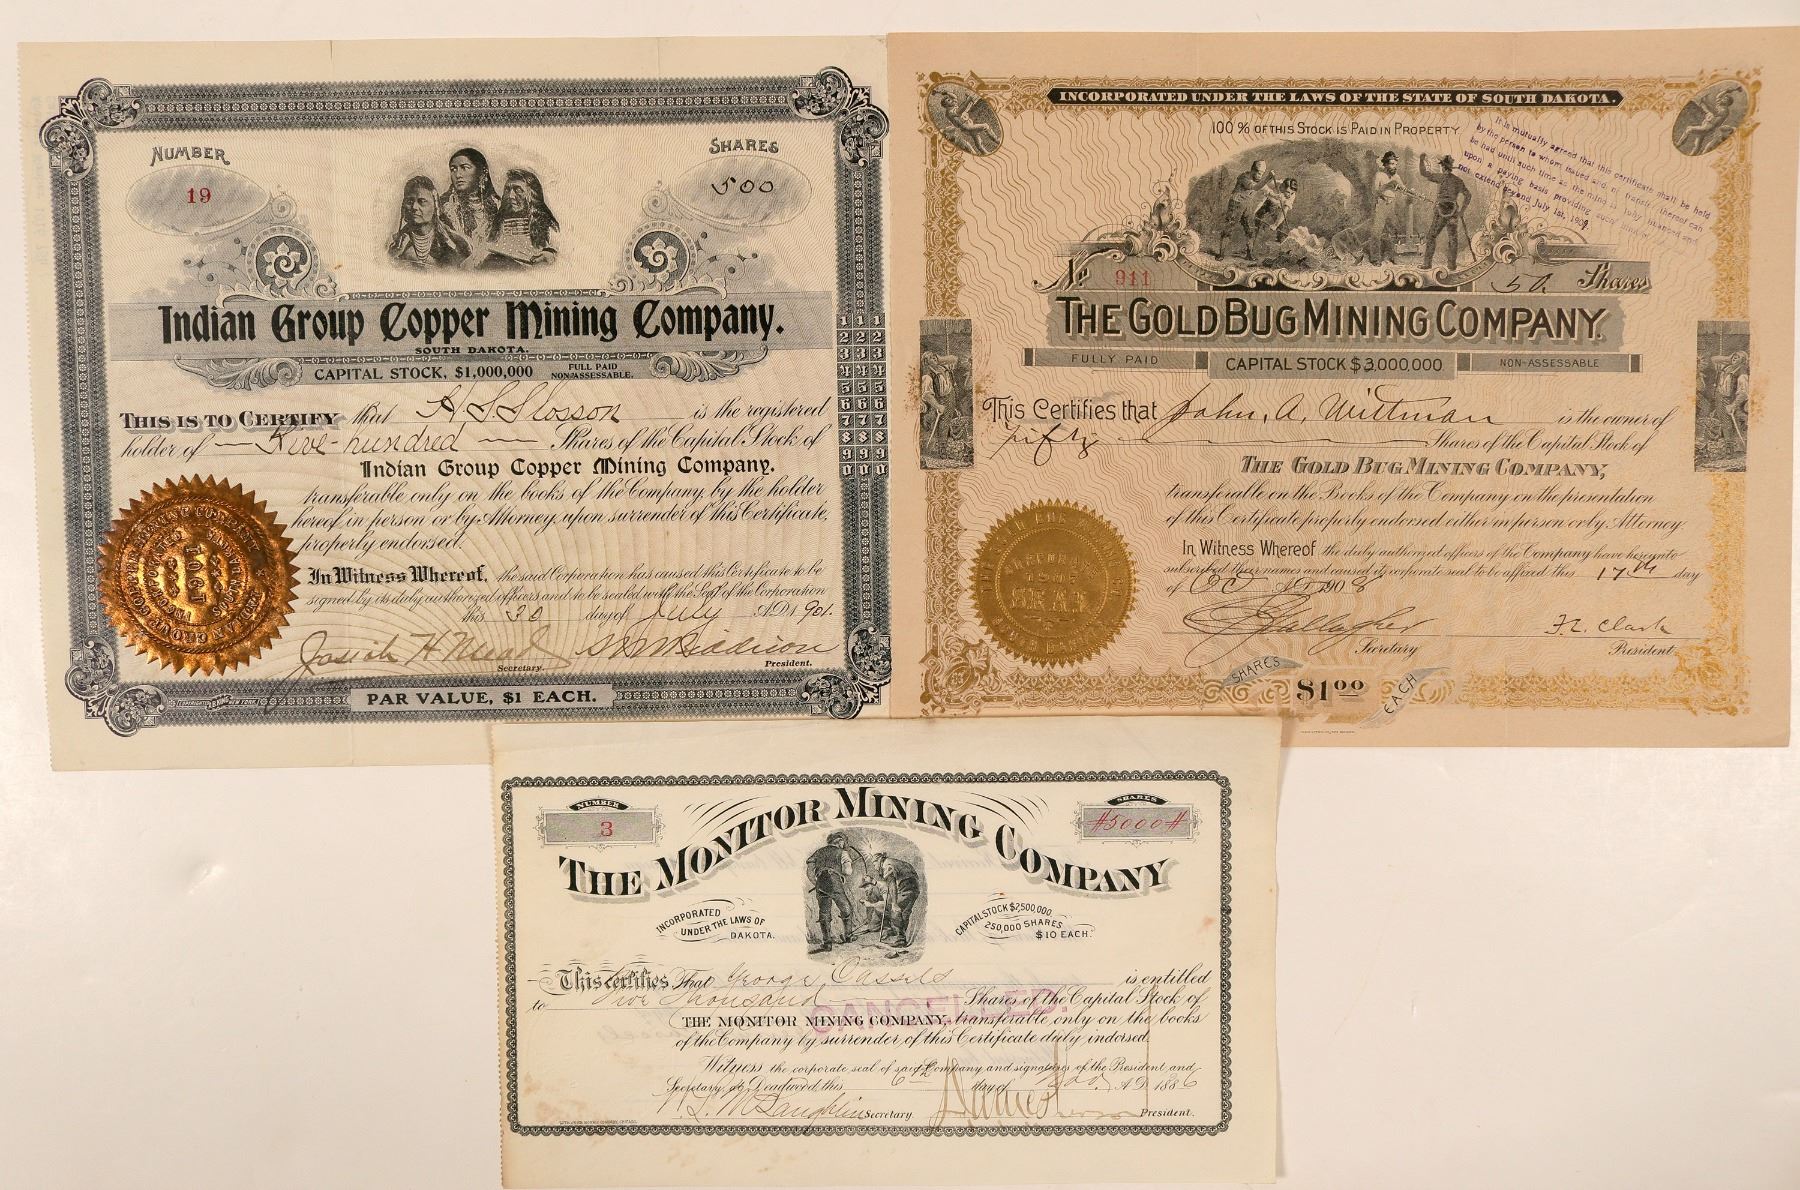 NUMBER
19
SHARES
500
Indian Group Copper Mining Company.
SOUTH DAKOTA.
CAPITAL STOCK, $1,000,000 FULL PAID NON-ASSESSABLE.
THIS IS TO CERTIFY that H S Slosson is the registered
holder of Five-hundred Shares of the Capital Stock of
Indian Group Copper Mining Company.
transferable only on the books of the Company, by the holder
hereof, in person or by Attorney, upon surrender of this Certificate,
properly endorsed.
In Witness Whereof, the said Corporation has caused this Certificate to be
signed by its duly authorized officers and to be sealed with the Seal of the Corporation
this 30 day of July A.D. 1901.
Josiah H Mead
Secretary.
President.
PAR VALUE, $1 EACH.
1 1 1
2 2 2
3 3 3
4 4 4
5 5 5
6 6 6
7 7 7
8 8 8
9 9 9
0 0 0
INDIAN GROUP COPPER MINING COMPANY
INCORPORATED
1901
INCORPORATED UNDER THE LAWS OF THE STATE OF SOUTH DAKOTA.
100 % OF THIS STOCK IS PAID IN PROPERTY
It is mutually agreed that this certificate shall be held
by the person to whom issued and no transfer thereof can
be had until such time as the mine is fully financed and
upon a paying basis providing such
not extend beyond July 1st, 1909.
No 911
50. Shares
THE GOLD BUG MINING COMPANY.
FULLY PAID
CAPITAL STOCK $3,000,000
NON-ASSESSABLE
This Certifies that John, A, Wittman is the owner of
fifty Shares of the Capital Stock of
THE GOLD BUG MINING COMPANY,
transferable on the Books of the Company on the presentation
of this Certificate properly endorsed either in person or by Attorney.
In Witness Whereof the duly authorized officers of the Company have hereunto
subscribed their names and caused its corporate seal to be affixed this 17th day
of Oct 1908
Gallagher
Secretary
F. L. Clark
President
SHARES $1.00 EACH
SEAL
NUMBER
3
SHARES
#5000#
THE MONITOR MINING COMPANY
INCORPORATED
UNDER THE LAWS OF
DAKOTA.
CAPITAL STOCK $2,500,000
250,000 SHARES
$10 EACH.
This certifies That George Cassels is entitled
to Five Thousand Shares of the Capital Stock of
CANCELLED.
THE MONITOR MINING COMPANY, transferable only on the books
of the Company by surrender of this Certificate duly indorsed.
Witness the corporate seal of said Company and signatures of the President and
Secretary, at Deadwood, this 6th day of Nov. A.D. 1886
W. L. McLaughlin Secretary.
President.